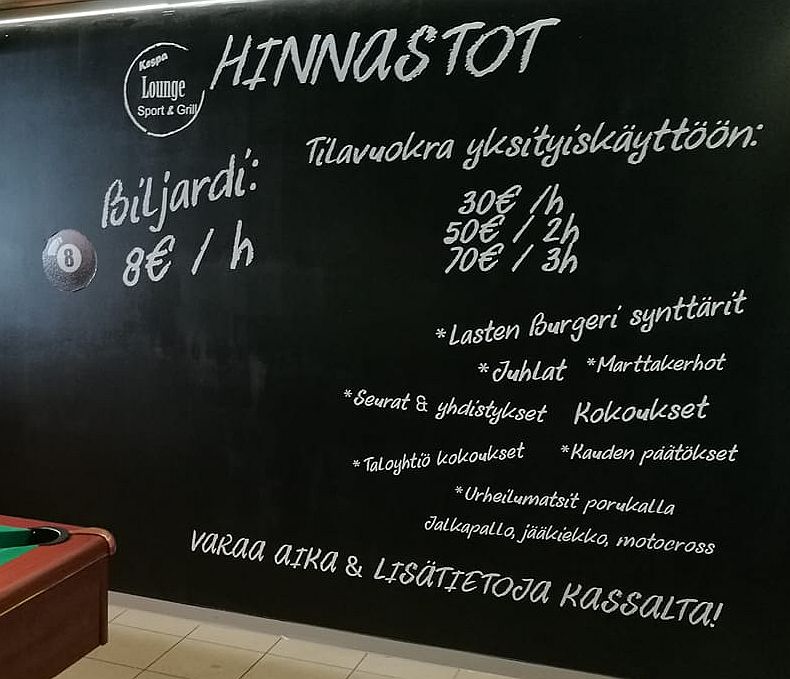 Kespa
Lounge
Sport & Grill
HINNASTOT
Biljardi:
8€ / h
8
Tilavuokra yksityiskäyttöön:
30€ /h
50€ / 2h
70€ / 3h
*Lasten Burgeri synttärit
*Juhlat *Marttakerhot
*Seurat & yhdistykset Kokoukset
*Taloyhtiö kokoukset *Kauden päätökset
*Urheilumatsit porukalla
Jalkapallo, jääkiekko, motocross
VARAA AIKA & LISÄTIETOJA KASSALTA!